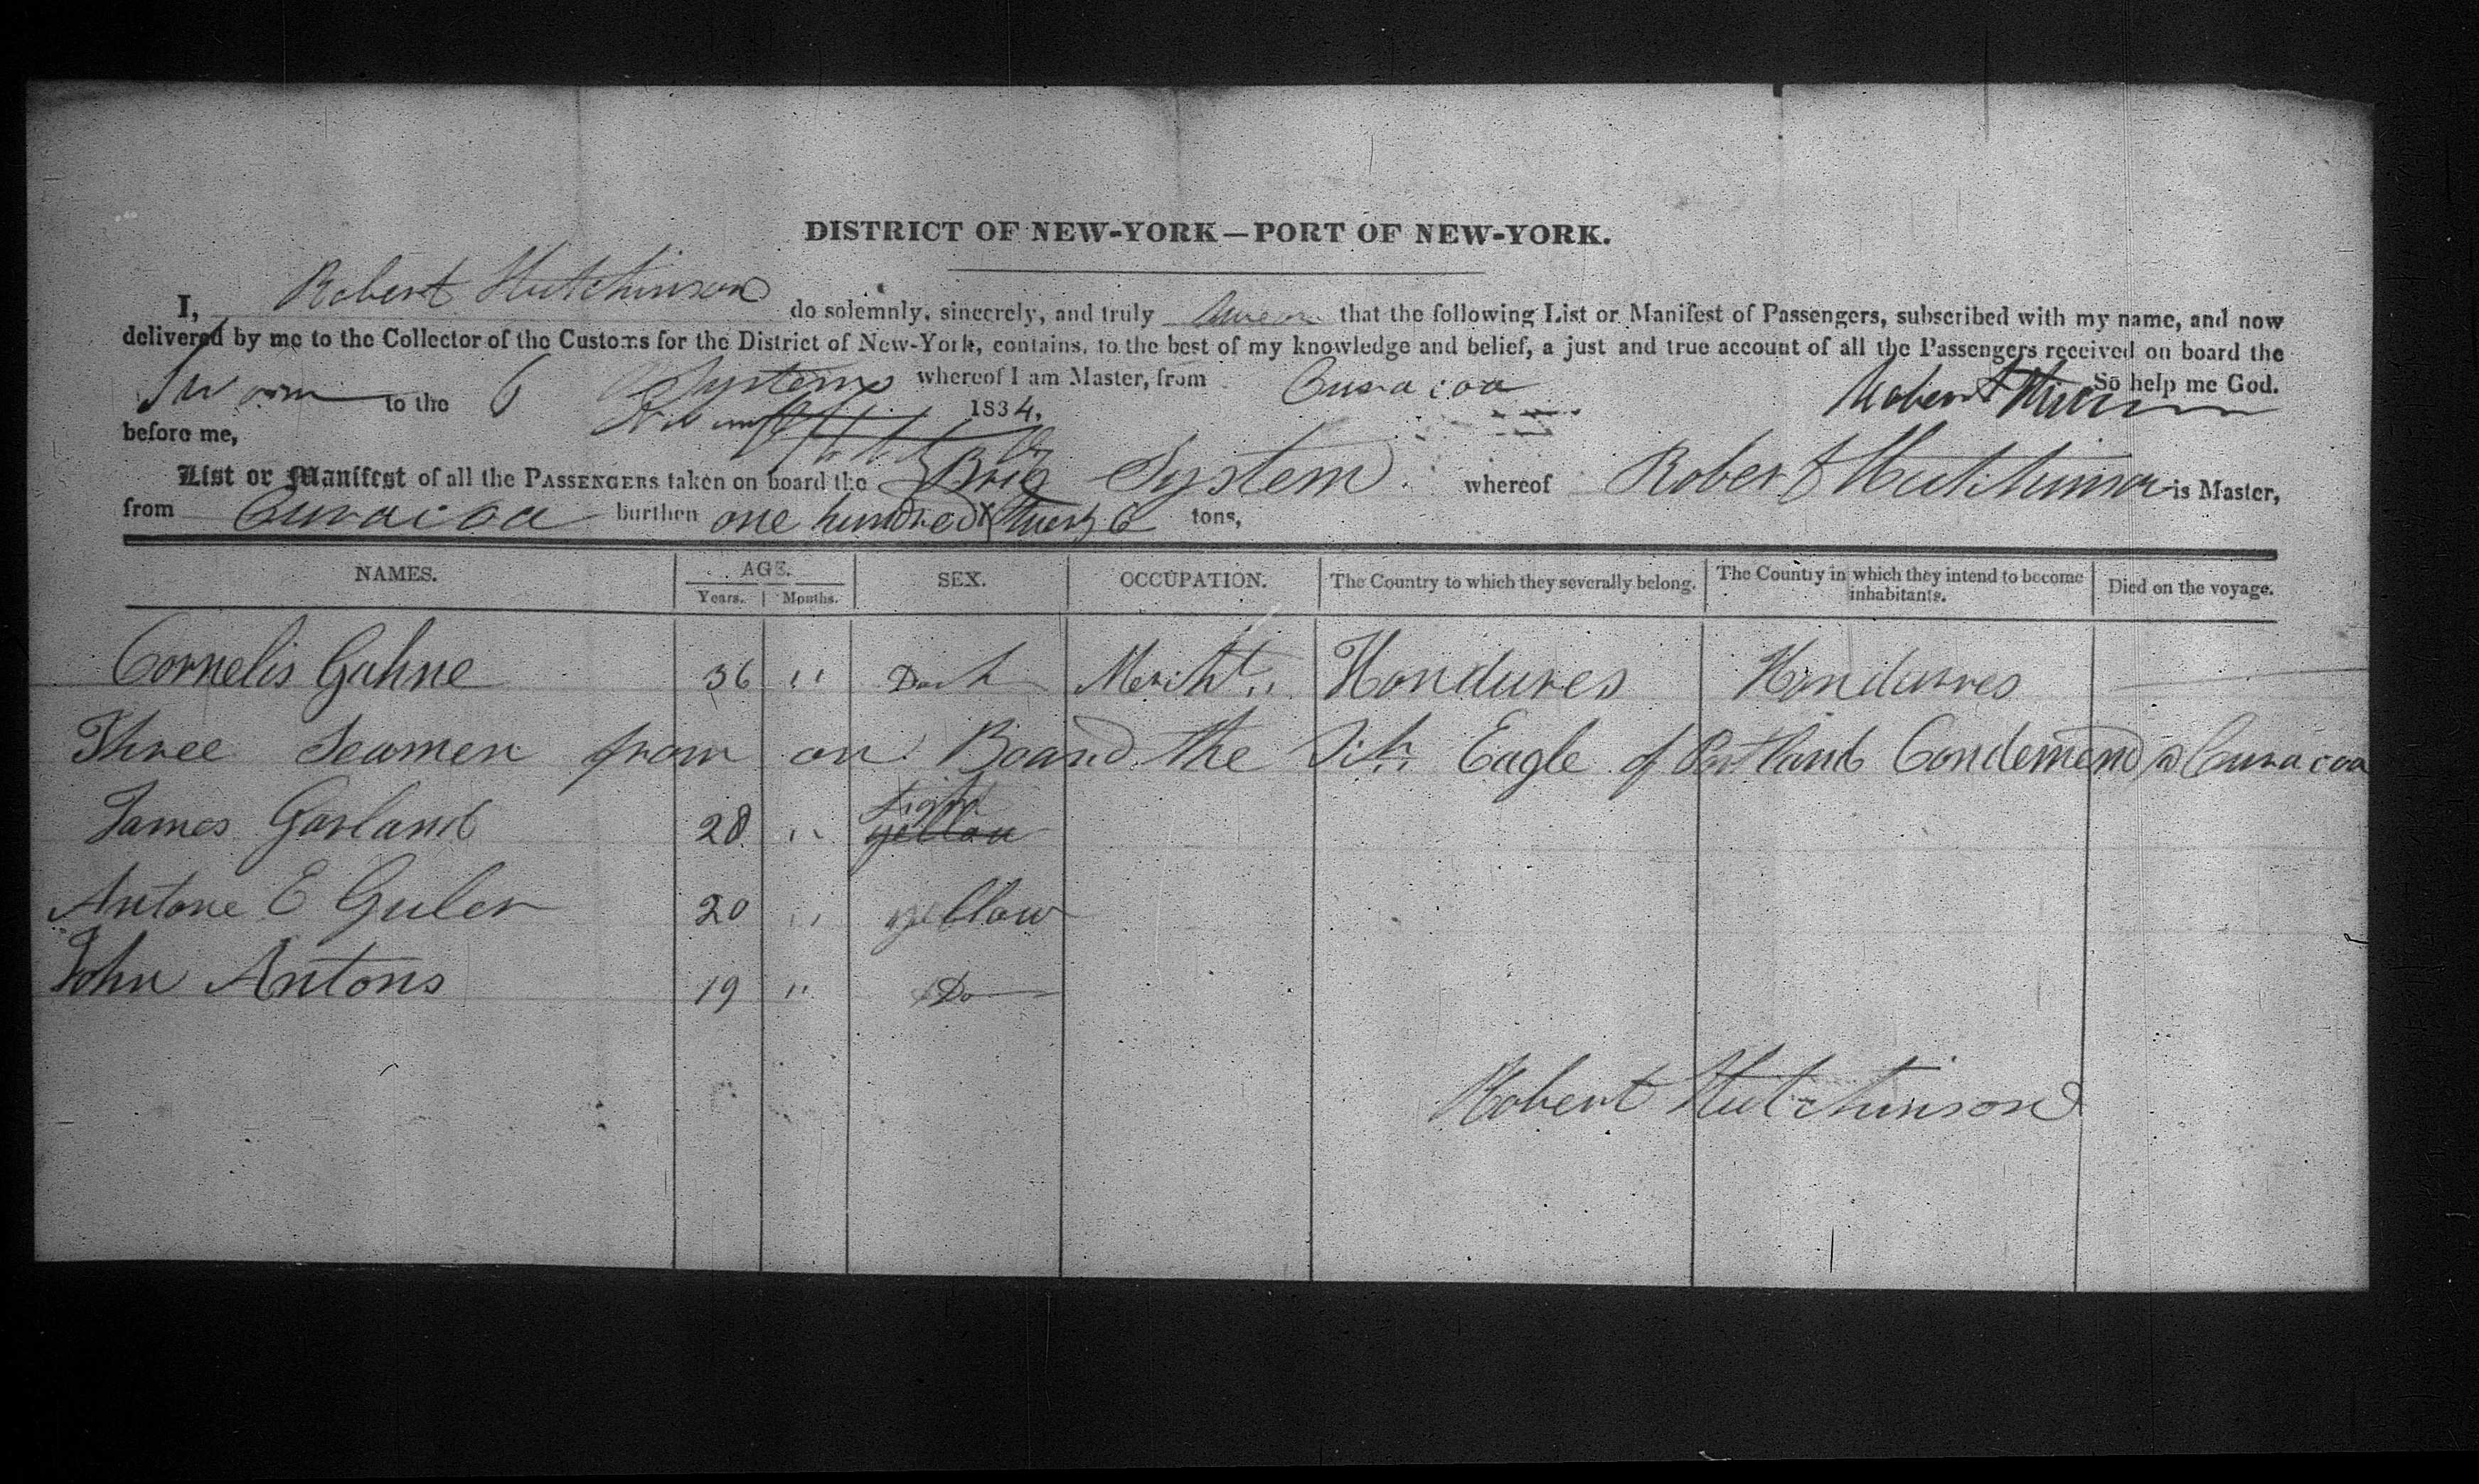 DISTRICT OF NEW-YORK—PORT OF NEW-YORK.
I, Robert Hutchinson do solemnly, sincerely, and truly Swear that the following List or Manifest of Passengers, subscribed with my name, and now
delivered by me to the Collector of the Customs for the District of New-York, contains, to the best of my knowledge and belief, a just and true account of all the Passengers received on board the
System whereof I am Master, from Curacoa So help me God.
Sworn to the 6 1834. Robert
before me,
List or Manifest of all the PASSENGERS taken on board the Brig System whereof Robert Hutchinson is Master,
from Curacoa burthen one hundred tons,
NAMES. AGE. SEX. OCCUPATION. The Country to which they severally belong. The Country in which they intend to become inhabitants. Died on the voyage.
Years. Months.
Cornelis Gahne 36 " Dark Mercht Hondures Hondures
Three Seamen from on Board the Sch. Eagle of Portland Condemend @ Curacoa
Light
James Garland 28 " yellow
Antone E Guler 20 " yellow
John Antons 19 " Do
Robert Hutchinson